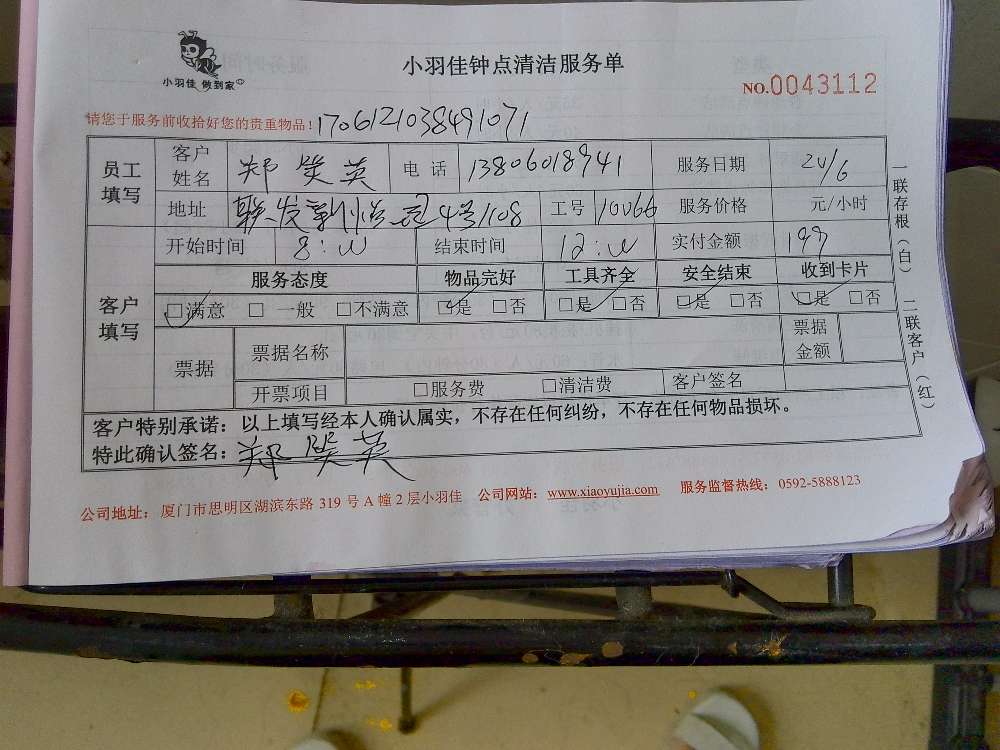 小羽佳 做到家
小羽佳钟点清洁服务单
NO.0043112
请您于服务前收拾好您的贵重物品！ 1706121038491071
员工填写 客户姓名 郑 英 电话 13806018941 服务日期
地址 联发新 4号1108 工号 10066 服务价格 元/小时
客户填写 开始时间 8: 结束时间 12: 实付金额
服务态度 物品完好 工具齐全 安全结束 收到卡片
□满意 □一般 □不满意 □是 □否 □是 □否 □是 □否 □是 □否
票据 票据名称 票据金额
开票项目 □服务费 □清洁费 客户签名
客户特别承诺：以上填写经本人确认属实，不存在任何纠纷，不存在任何物品损坏。
特此确认签名：郑 英
一联存根（白） 二联客户（红）
公司地址：厦门市思明区湖滨东路 319 号 A 幢 2 层小羽佳 公司网站：www.xiaoyujia.com 服务监督热线：0592-5888123